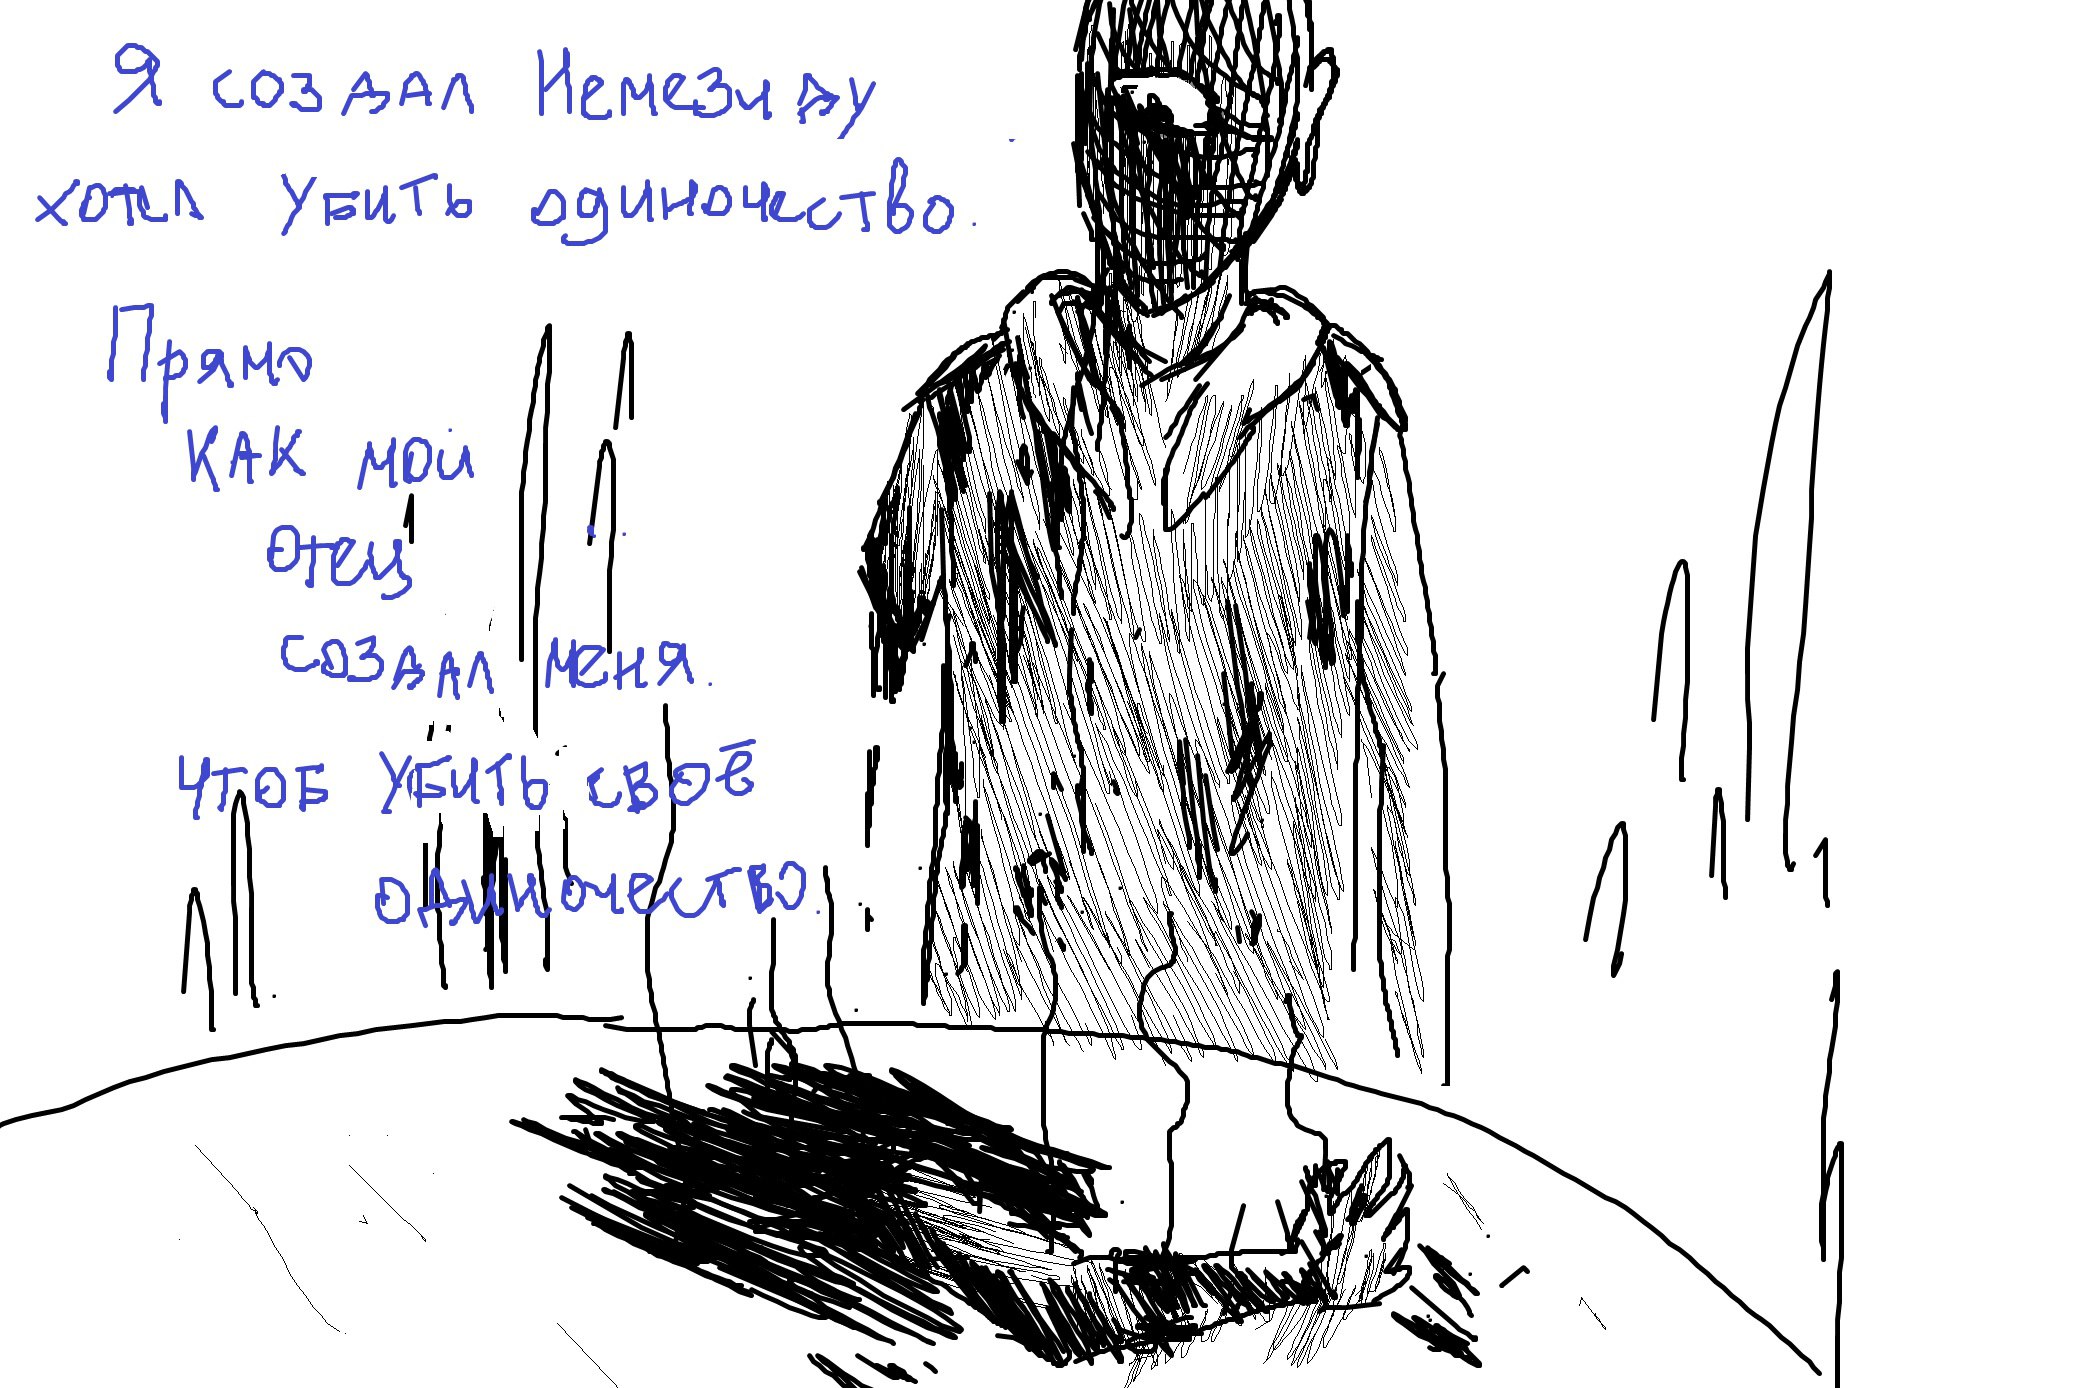 Я создал Немезиду
хотел убить одиночество.
Прямо
как мой
отец
создал меня.
чтоб убить своё
одиночество.